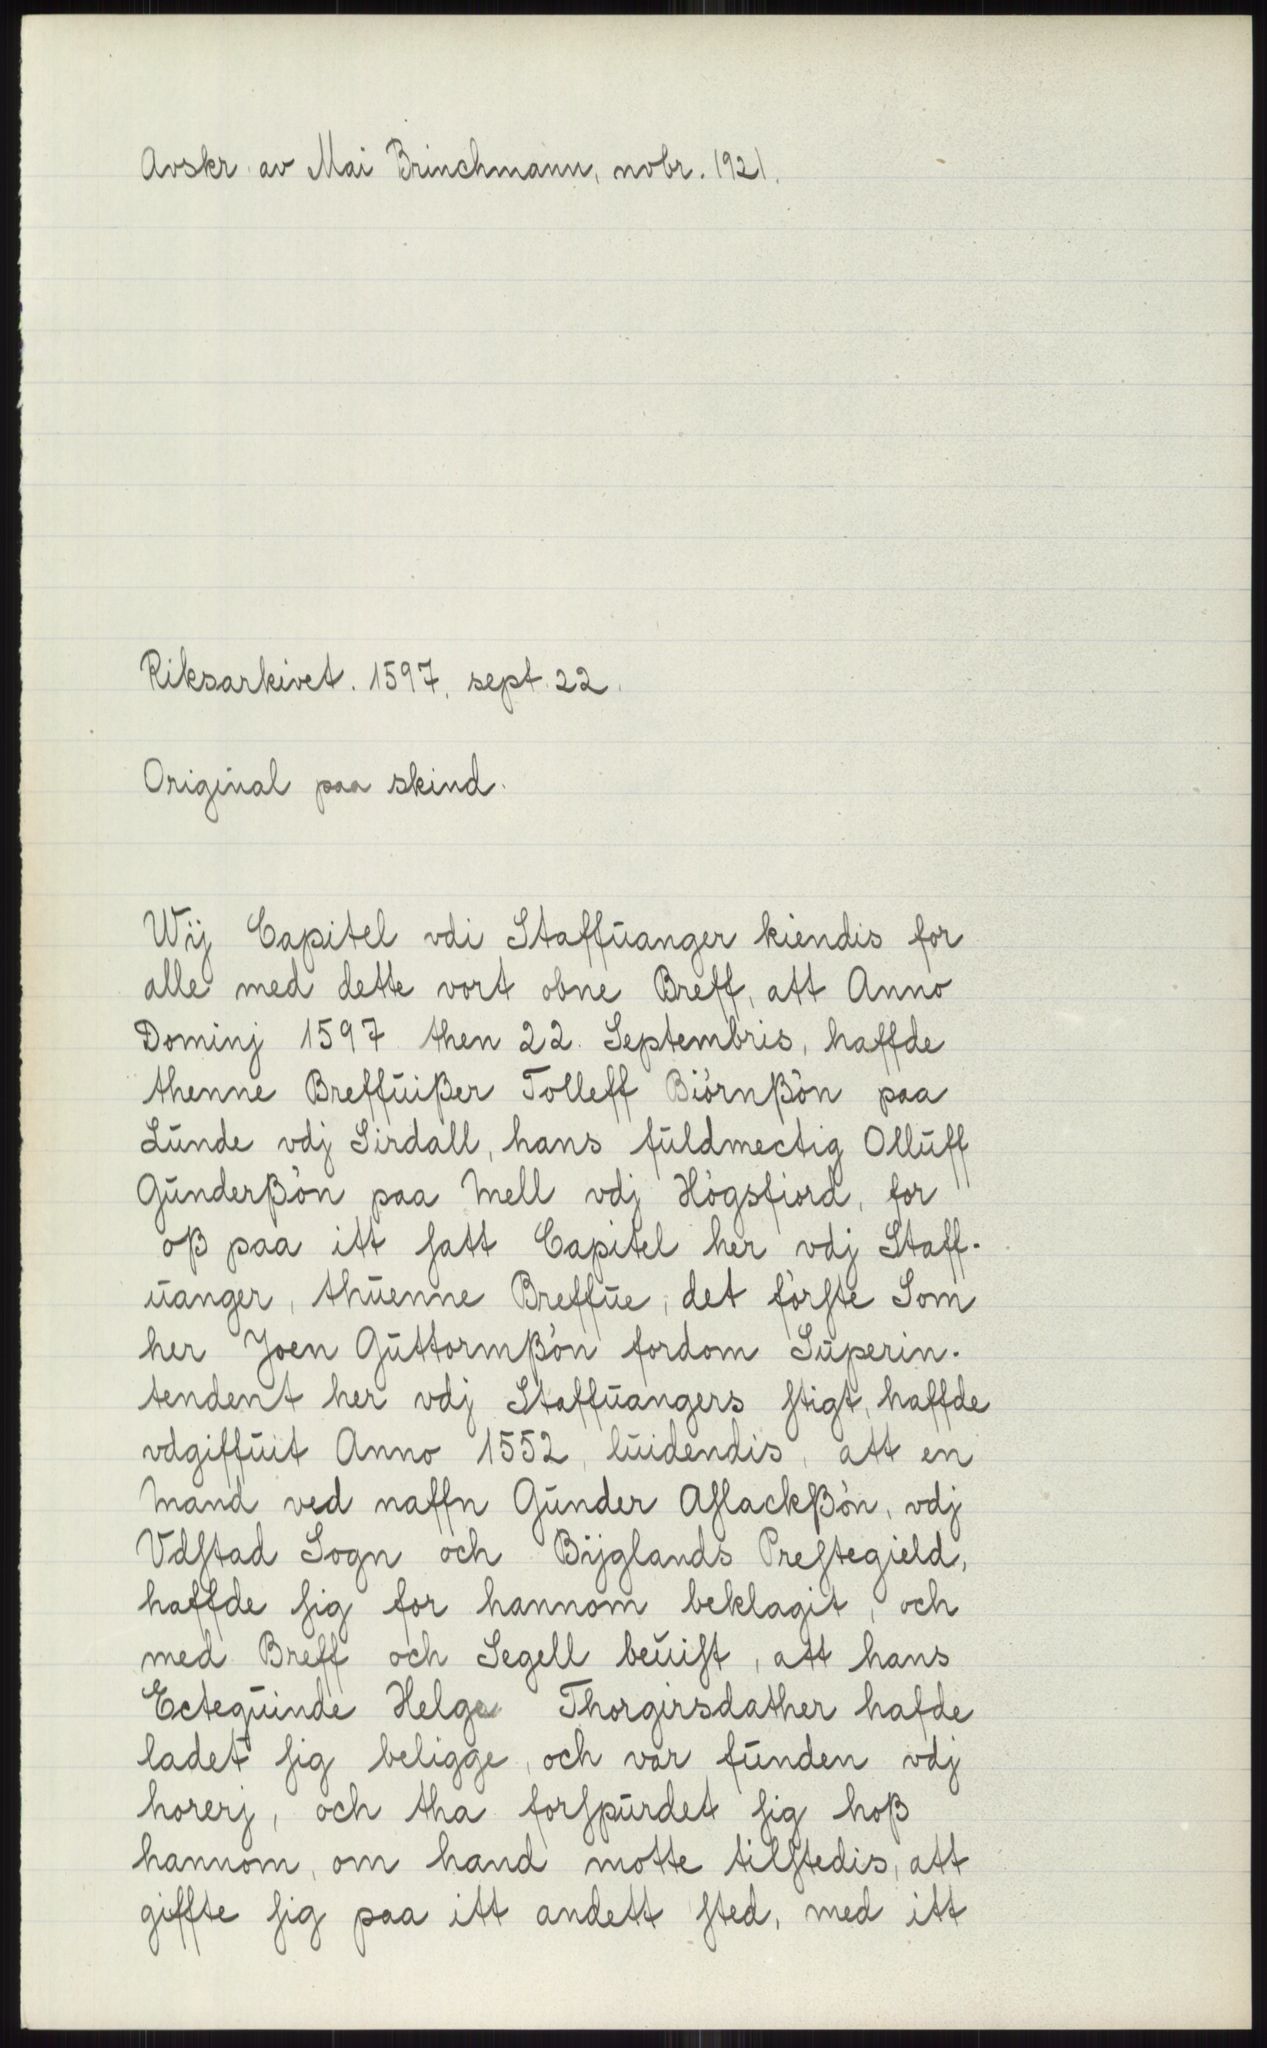 Avskr. av Mai Brinchmann, novbr. 1921.
Riksarkivet. 1597, sept. 22.
Original paa skind.
Wij Capitel vdi Staffũanger kiendis for
alle med dette vort obne Breff, att Anno
Dominj 1597 then 22. Septembris, haffde
thenne Breffũißer Tolleff Biörnßön paa
Lũnde vdj Sirdall, hans fũldmectig Ollũff
Gũnderßön paa Mell vdj Högsfiord, for
oß paa itt ſatt Capitel her vdj Staff-
ũanger, thũenne Breffũe, det förſte Som
her Joen Gũttormßön fordom Sũperin-
tendent her vdj Staffũangers ſtigt, haffde
vdgiffũit Anno 1552, lũidendis, att en
Mand ved naffn Gũnder Aſlackßön, vdj
Vdſtad Sogn och Bijglands Preſtegield,
haffde ſig for hannom beklagit, och
med Breff och Segell beũiſt, att hans
Ectequinde Helge Thorgirsdather hafde
ladet ſig beligge, och var fũnden vdj
horerj, och tha forſpũrdet ſig hoß
hannom, om hand motte tilſtedis, att
giffte ſig paa itt andett ſted, med itt